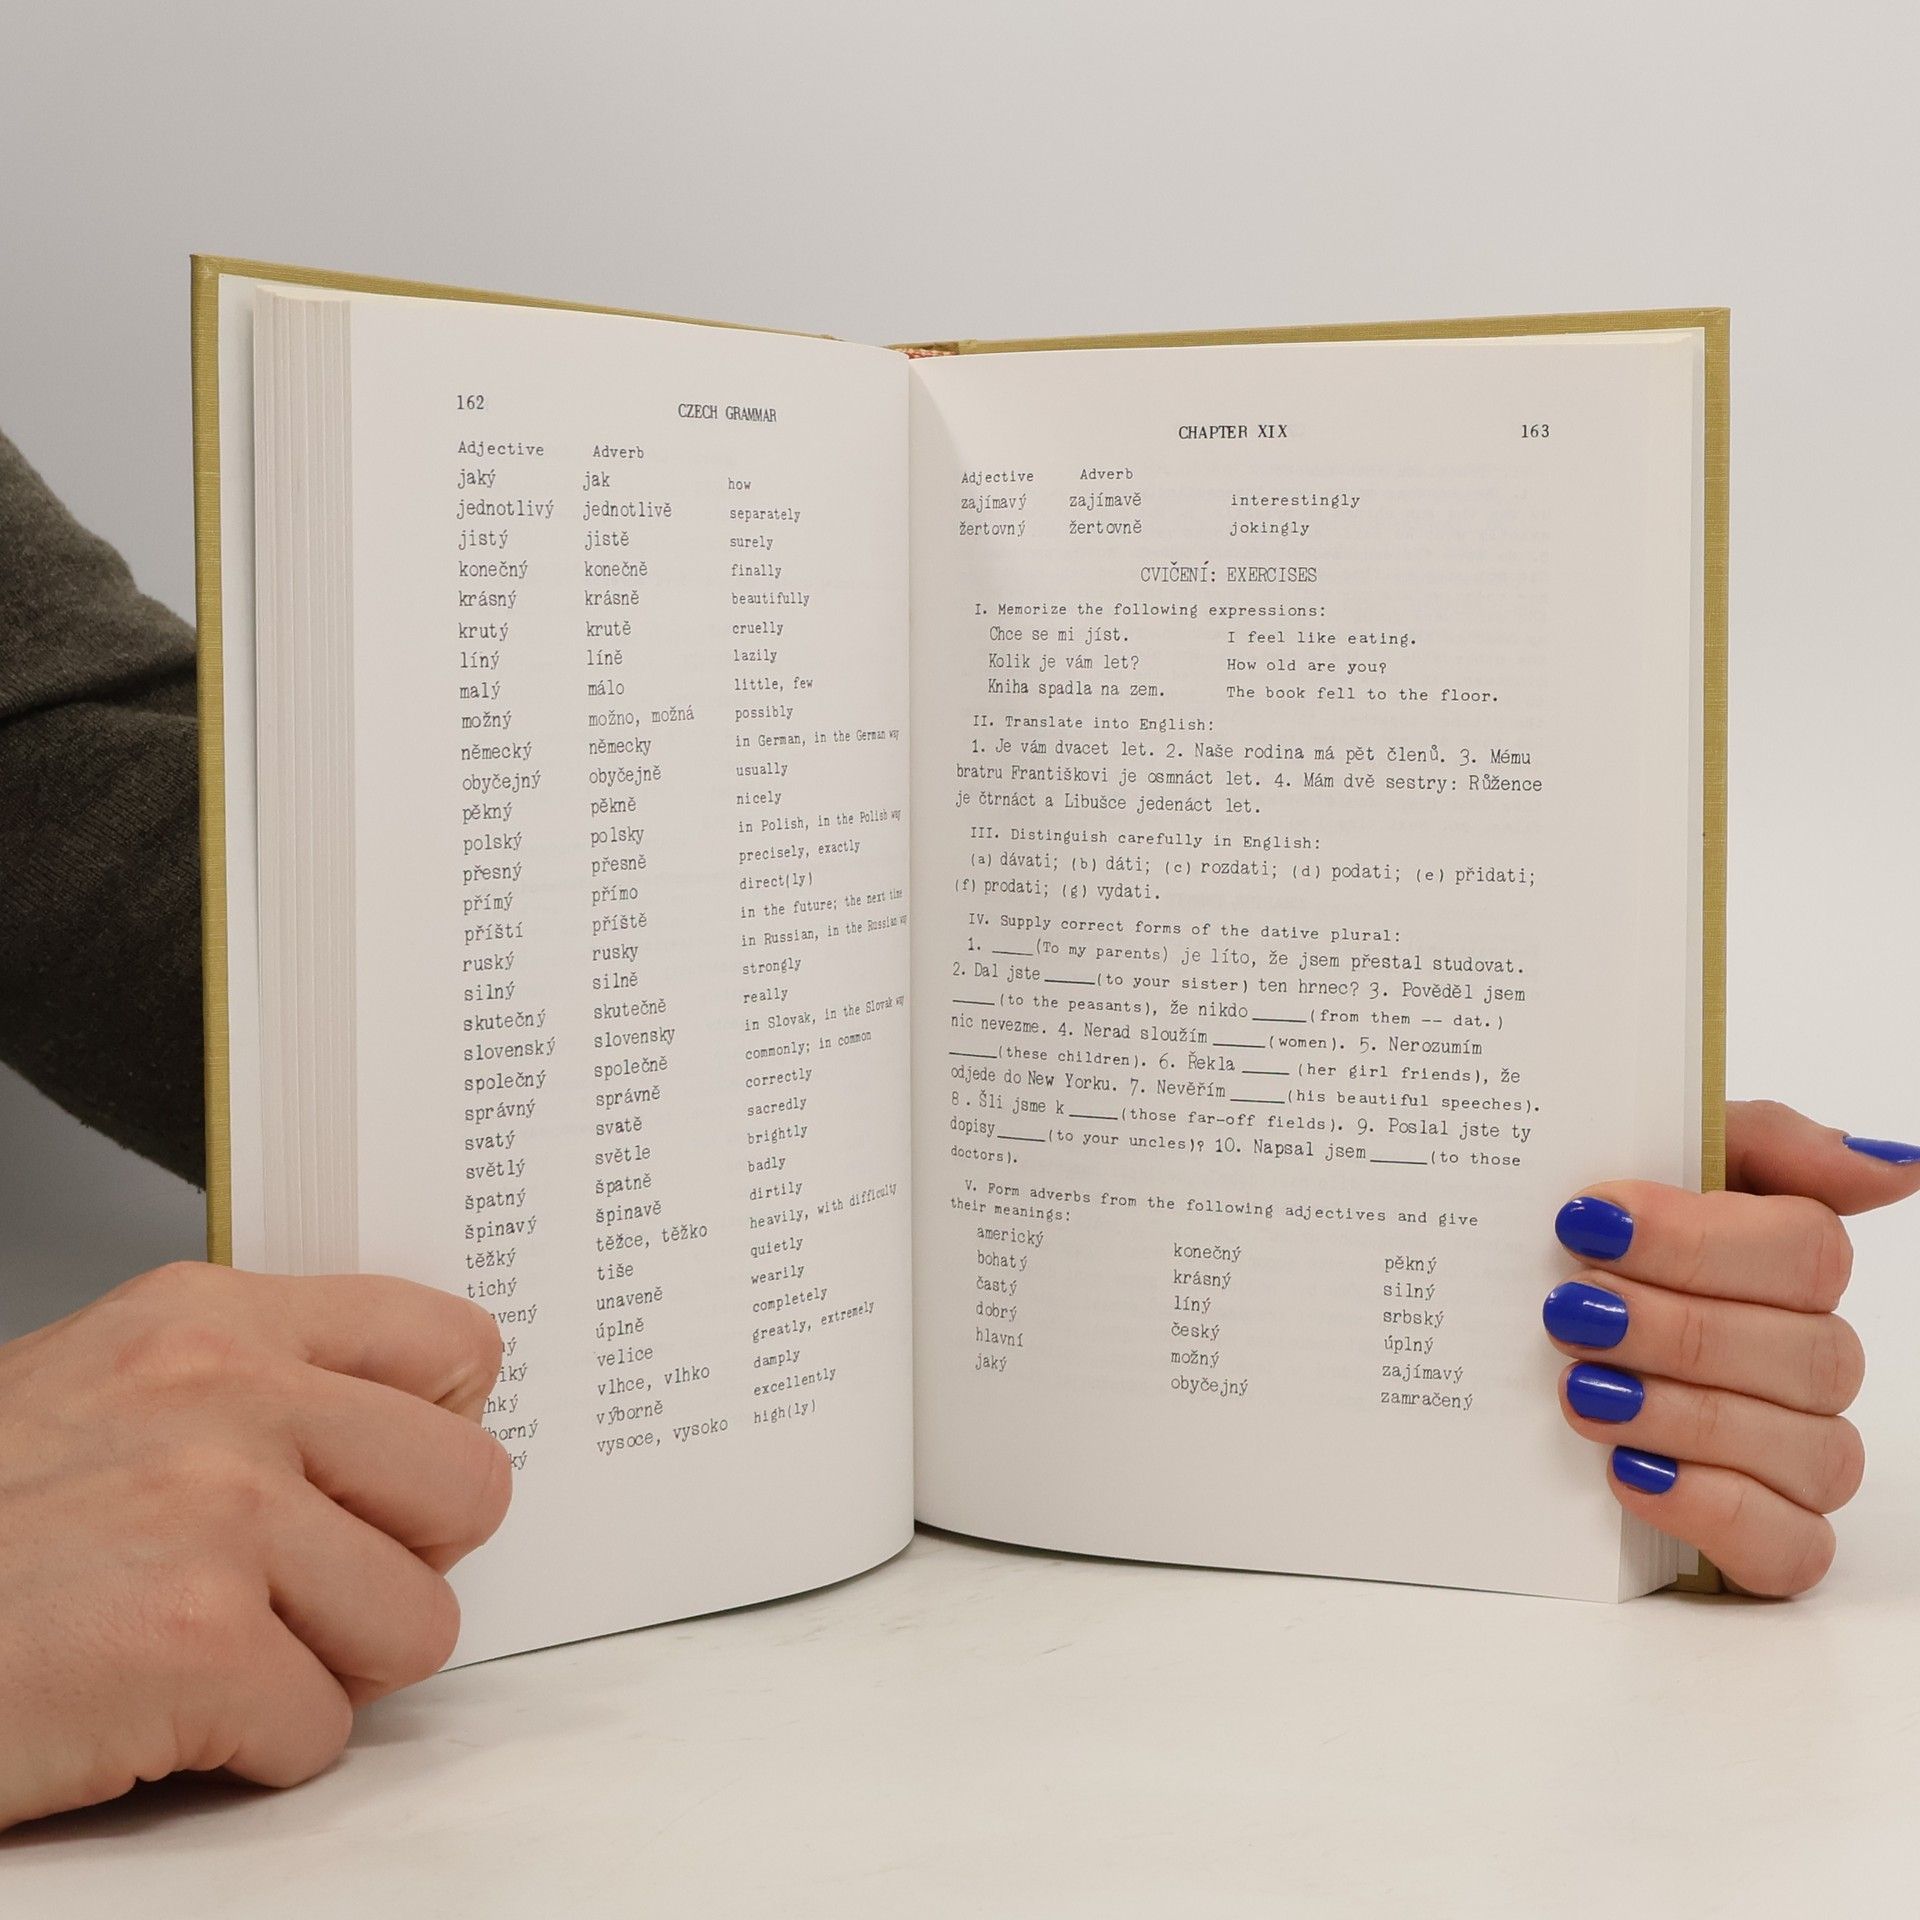 162 CZECH GRAMMAR
Adjective Adverb
jaký jak how
jednotlivý jednotlivě separately
jistý jistě surely
konečný konečně finally
krásný krásně beautifully
krutý krutě cruelly
líný líně lazily
malý málo little, few
možný možno, možná possibly
německý německy in German, in the German way
obyčejný obyčejně usually
pěkný pěkně nicely
polský polsky in Polish, in the Polish way
přesný přesně precisely, exactly
přímý přímo direct(ly)
příští příště in the future; the next time
ruský rusky in Russian, in the Russian way
silný silně strongly
skutečný skutečně really
slovenský slovensky in Slovak, in the Slovak way
společný společně commonly; in common
správný správně correctly
svatý svatě sacredly
světlý světle brightly
špatný špatně badly
špinavý špinavě dirtily
těžký těžce, těžko heavily, with difficulty
tichý tiše quietly
unaveně wearily
úplně completely
velice greatly, extremely
vlhce, vlhko damply
výborně excellently
vysoce, vysoko high(ly)
CHAPTER XIX 163
Adjective Adverb
zajímavý zajímavě interestingly
žertovný žertovně jokingly
CVIČENÍ: EXERCISES
I. Memorize the following expressions:
Chce se mi jíst. I feel like eating.
Kolik je vám let? How old are you?
Kniha spadla na zem. The book fell to the floor.
II. Translate into English:
1. Je vám dvacet let. 2. Naše rodina má pět členů. 3. Mému
bratru Františkovi je osmnáct let. 4. Mám dvě sestry: Růžence
je čtrnáct a Libušce jedenáct let.
III. Distinguish carefully in English:
(a) dávati; (b) dáti; (c) rozdati; (d) podati; (e) přidati;
(f) prodati; (g) vydati.
IV. Supply correct forms of the dative plural:
1. ____(To my parents) je líto, že jsem přestal studovat.
2. Dal jste _____(to your sister) ten hrnec? 3. Pověděl jsem
____(to the peasants), že nikdo _____(from them -- dat.)
nic nevezme. 4. Nerad sloužím _____(women). 5. Nerozumím
_____(these children). 6. Řekla _____ (her girl friends), že
odjede do New Yorku. 7. Nevěřím _____(his beautiful speeches).
8. Šli jsme k _____(those far-off fields). 9. Poslal jste ty
dopisy_____(to your uncles)? 10. Napsal jsem _____(to those
doctors).
V. Form adverbs from the following adjectives and give
their meanings:
americký konečný pěkný
bohatý krásný silný
častý líný srbský
dobrý český úplný
hlavní možný zajímavý
jaký obyčejný zamračený